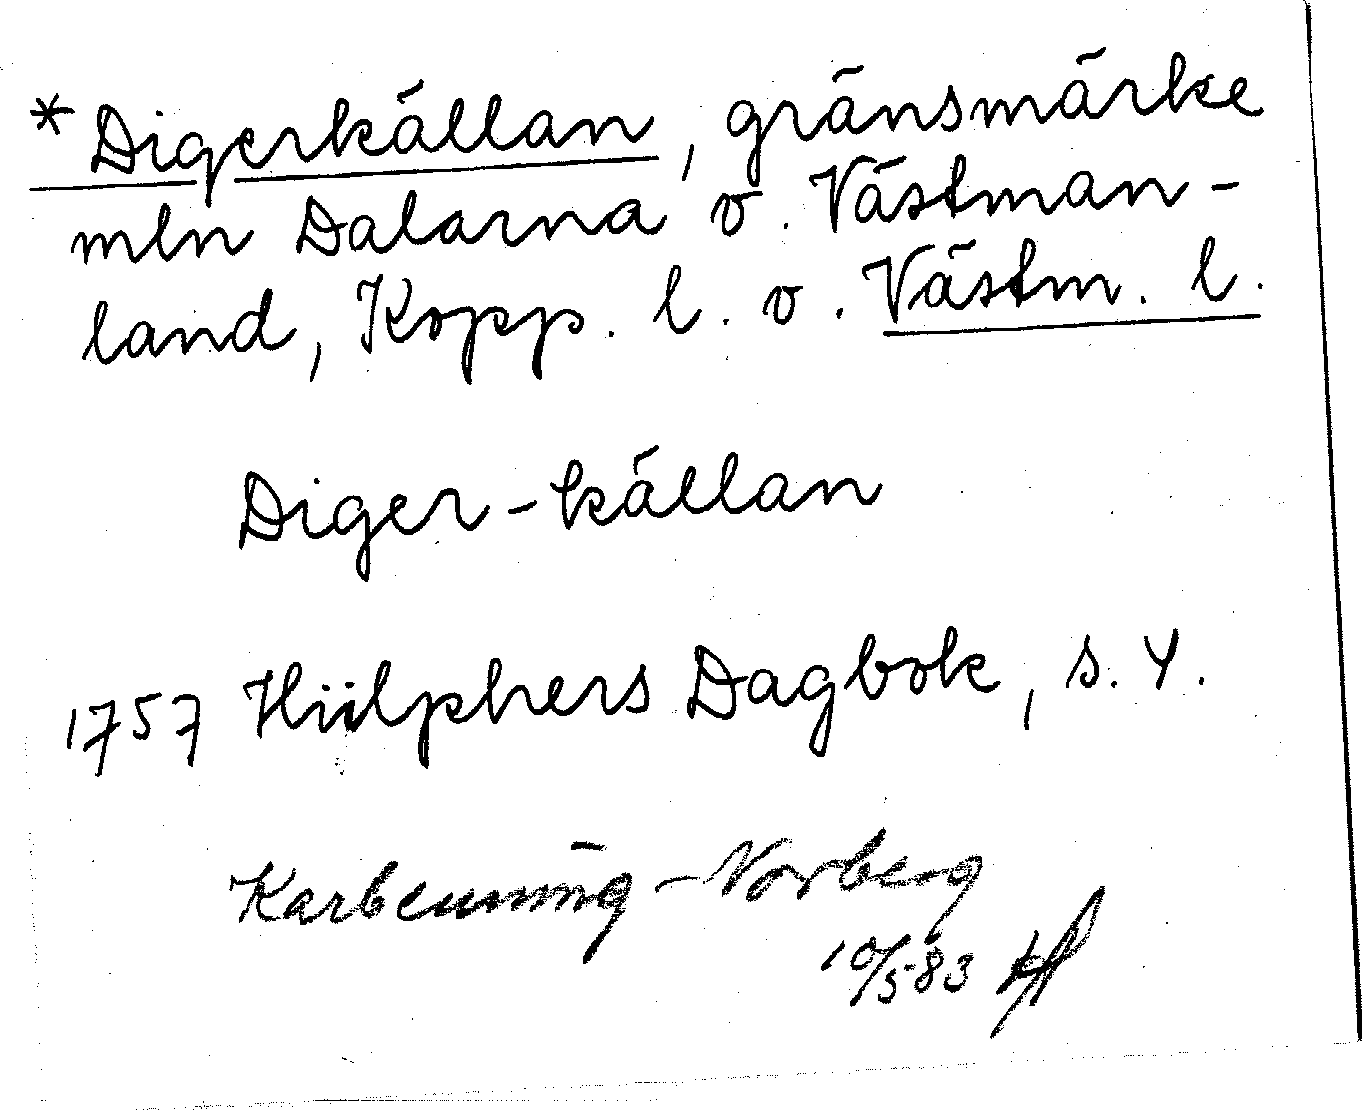 *Digerkällan, gränsmärke
mln Dalarna o. Västman-
land, Kopp. l. o. Västm. l.
Diger-källan
1757 Hülphers Dagbok, s. 4.
Karbenning - Norberg
10/5 83